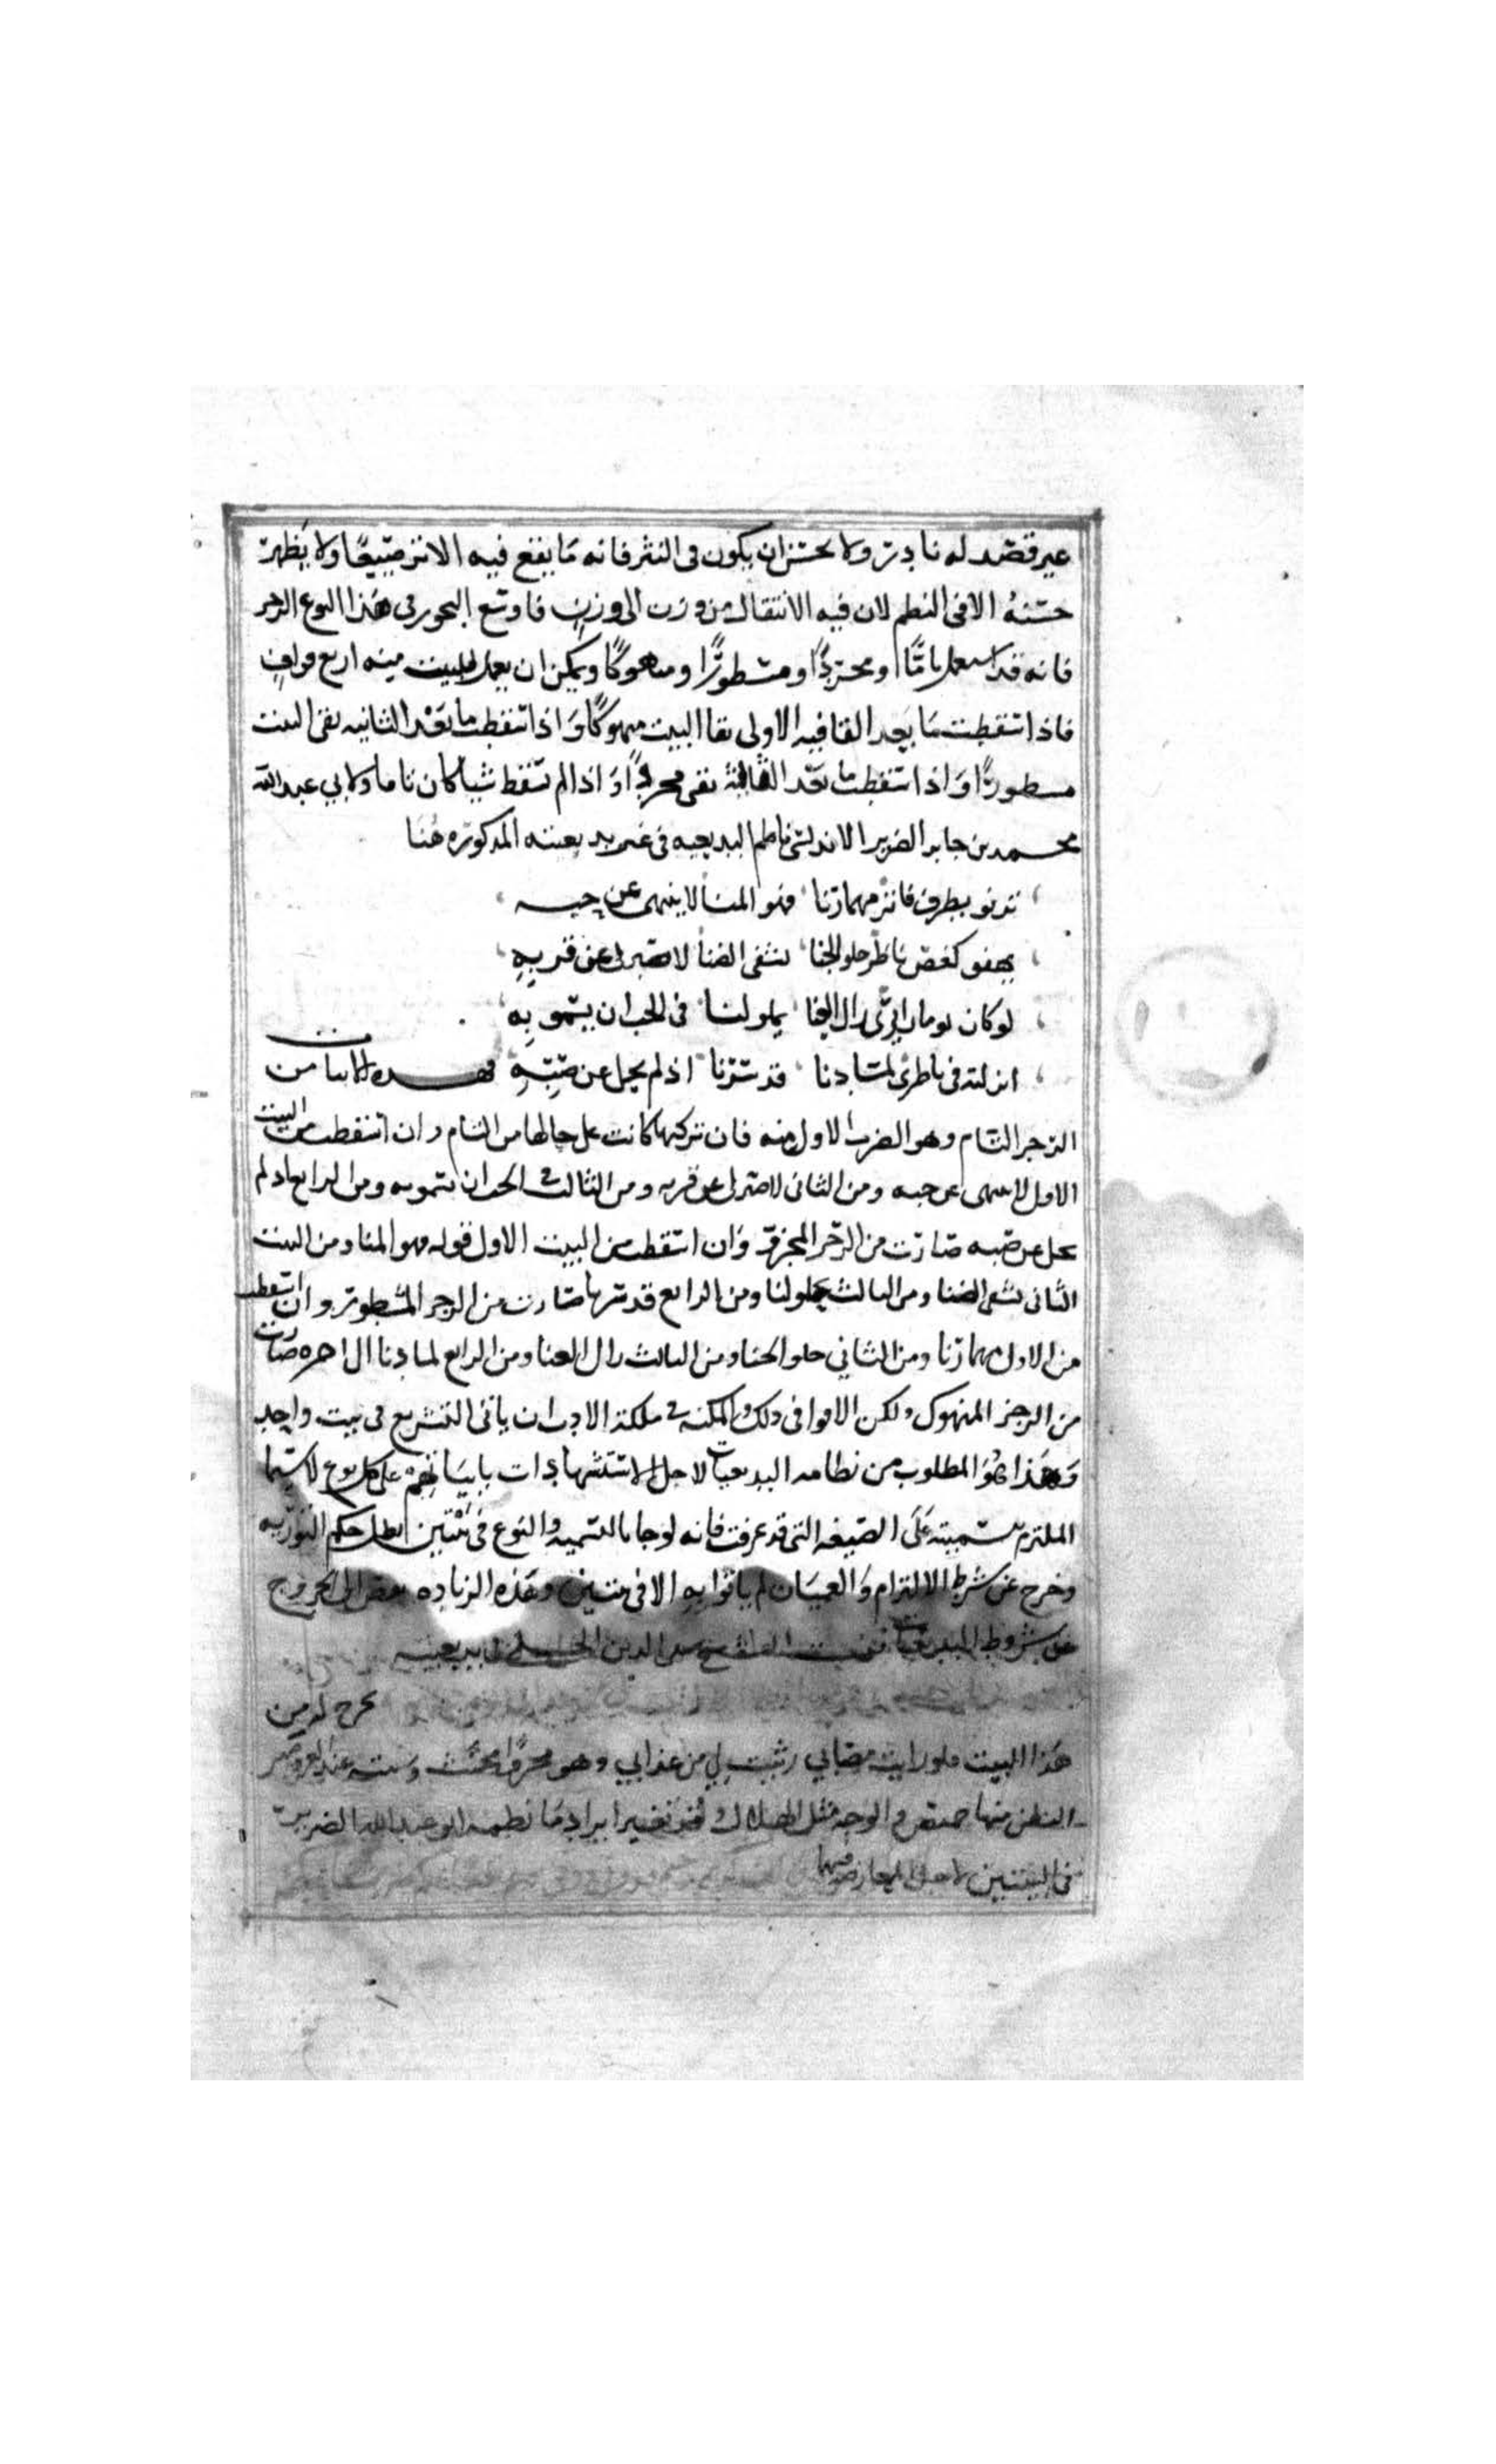 غير قصد له نادر ولا يحسن ان يكون فى النثر فانه ما يقع فيه الا نزر صبيعا ولا يظهر
حسنه الا فى النظم لان فيه الانتقال من وزن الى وزن فاوسع البحور فى هذا النوع الرجز
فانه قد استعمل تاما ومجزوًا ومشطورًا ومنهوكًا ويمكن ان يعمل للبيت منه اربع قوافٍ
فاذا اسقطت ما بعد القافيه الاولى بقا البيت منهوكًا وَاذا اسقطت ما بعد الثانيه بقى البيت
مسطورًا وَاذا اسقطت ما بعد الثالثة بقى مجزوًا وَاذا لم تسقط شيا كان تاما ولابي عبد الله
محمد بن جابر الضرير الاندلسى ناظم البديعيه فى غير بديعيته المذكوره هُنا
يرنو بطرف فاتر مهما رنا فهو المنا لا ينتهى عن حبه
يهفو كغصن ناظر حلو الجنا يشفى الضنا لا صبر لى عن قربهِ
لو كان يوما زايرى زال العنا يحلو لنا فى الحب ان يسمو بِه
انزلته فى ناظرى لما دنا قد سرنا اذ لم يحل عن صبِّهِ فهذه الابيات من
الرجز التام وهو الضرب الاول منه فان تركتها كانت على حالها من التام وان اسقطت من البيت
الاول لا ينتهى عن حبه ومن الثانى لا صبر لى عن قربه ومن الثالث فى الحب ان يسمو به ومن الرابع اذ لم
يحل عن صبه صارت من الرجز المجزو وَان اسقطت من البيت الاول قوله فهو المنا ومن البيت
الثانى يشفى الضنا ومن الثالث يحلو لنا ومن الرابع قد سرنا صارت من الرجز المشطور وان اسقطت
من الاول مهما رنا ومن الثاني حلو الجنا ومن الثالث زال العنا ومن الرابع لما دنا الى اخره صارت
من الرجز المنهوك ولكن الاقوا فى ذلك والمكنه فى ملكة الادب ان ياتى التشريع فى بيت واحد
وَهذا هُوَ المطلوب من نظامه البديعيات لاجل الاستشهادات بابياتهم على كل نوع لا سيما
الملتزم بتسميته عَلَى الصيغه التى قد عرفت فانه لو جا بالتسميه والنوع فى بيتين بطل حكم التوريه
وخرج عن شرط الالتزام وَالعميان لم ياتوا بِهِ الا فى بيتين وهذه الزياده بعض الى الخروج
عن شروط البديعيات فبيت الشيخ صفى الدين الحلى فى بديعيته
يخرج له من
هَذا البيت فلو رايت مصابي رثيت لي من عذابي وهو مجزو المجتث وبيته عند العروضيين
البطن منها خميص والوجه مثل الهلال ايراد ما نظمه ابو عبد الله الضرير
فى البيتين لاجل المعارضه